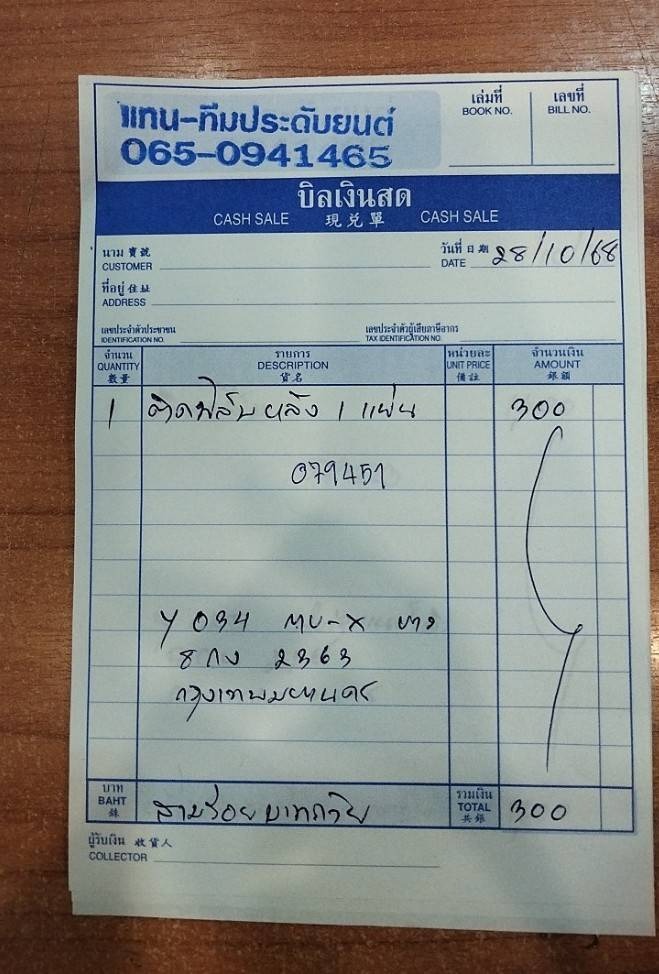 แทน-ทีมประดับยนต์
065-0941465
เล่มที่
BOOK NO.
เลขที่
BILL NO.
บิลเงินสด
CASH SALE 現兌單 CASH SALE
นาม 寶號
CUSTOMER
วันที่ 日期
DATE 28/10/68
ที่อยู่ 住址
ADDRESS
เลขประจำตัวประชาชน
IDENTIFICATION NO.
เลขประจำตัวผู้เสียภาษีอากร
TAX IDENTIFICATION NO.
จำนวน
QUANTITY
數量
รายการ
DESCRIPTION
貨名
หน่วยละ
UNIT PRICE
備註
จำนวนเงิน
AMOUNT
銀額
1 ติดฟิล์มหลัง 1 แผ่น 300
079451
Y 034 MU-X ขาว
8 กง 2363
กรุงเทพมหานคร
บาท
BAHT
銖
สามร้อยบาทถ้วน
รวมเงิน
TOTAL
共銀
300
ผู้รับเงิน 收貨人
COLLECTOR